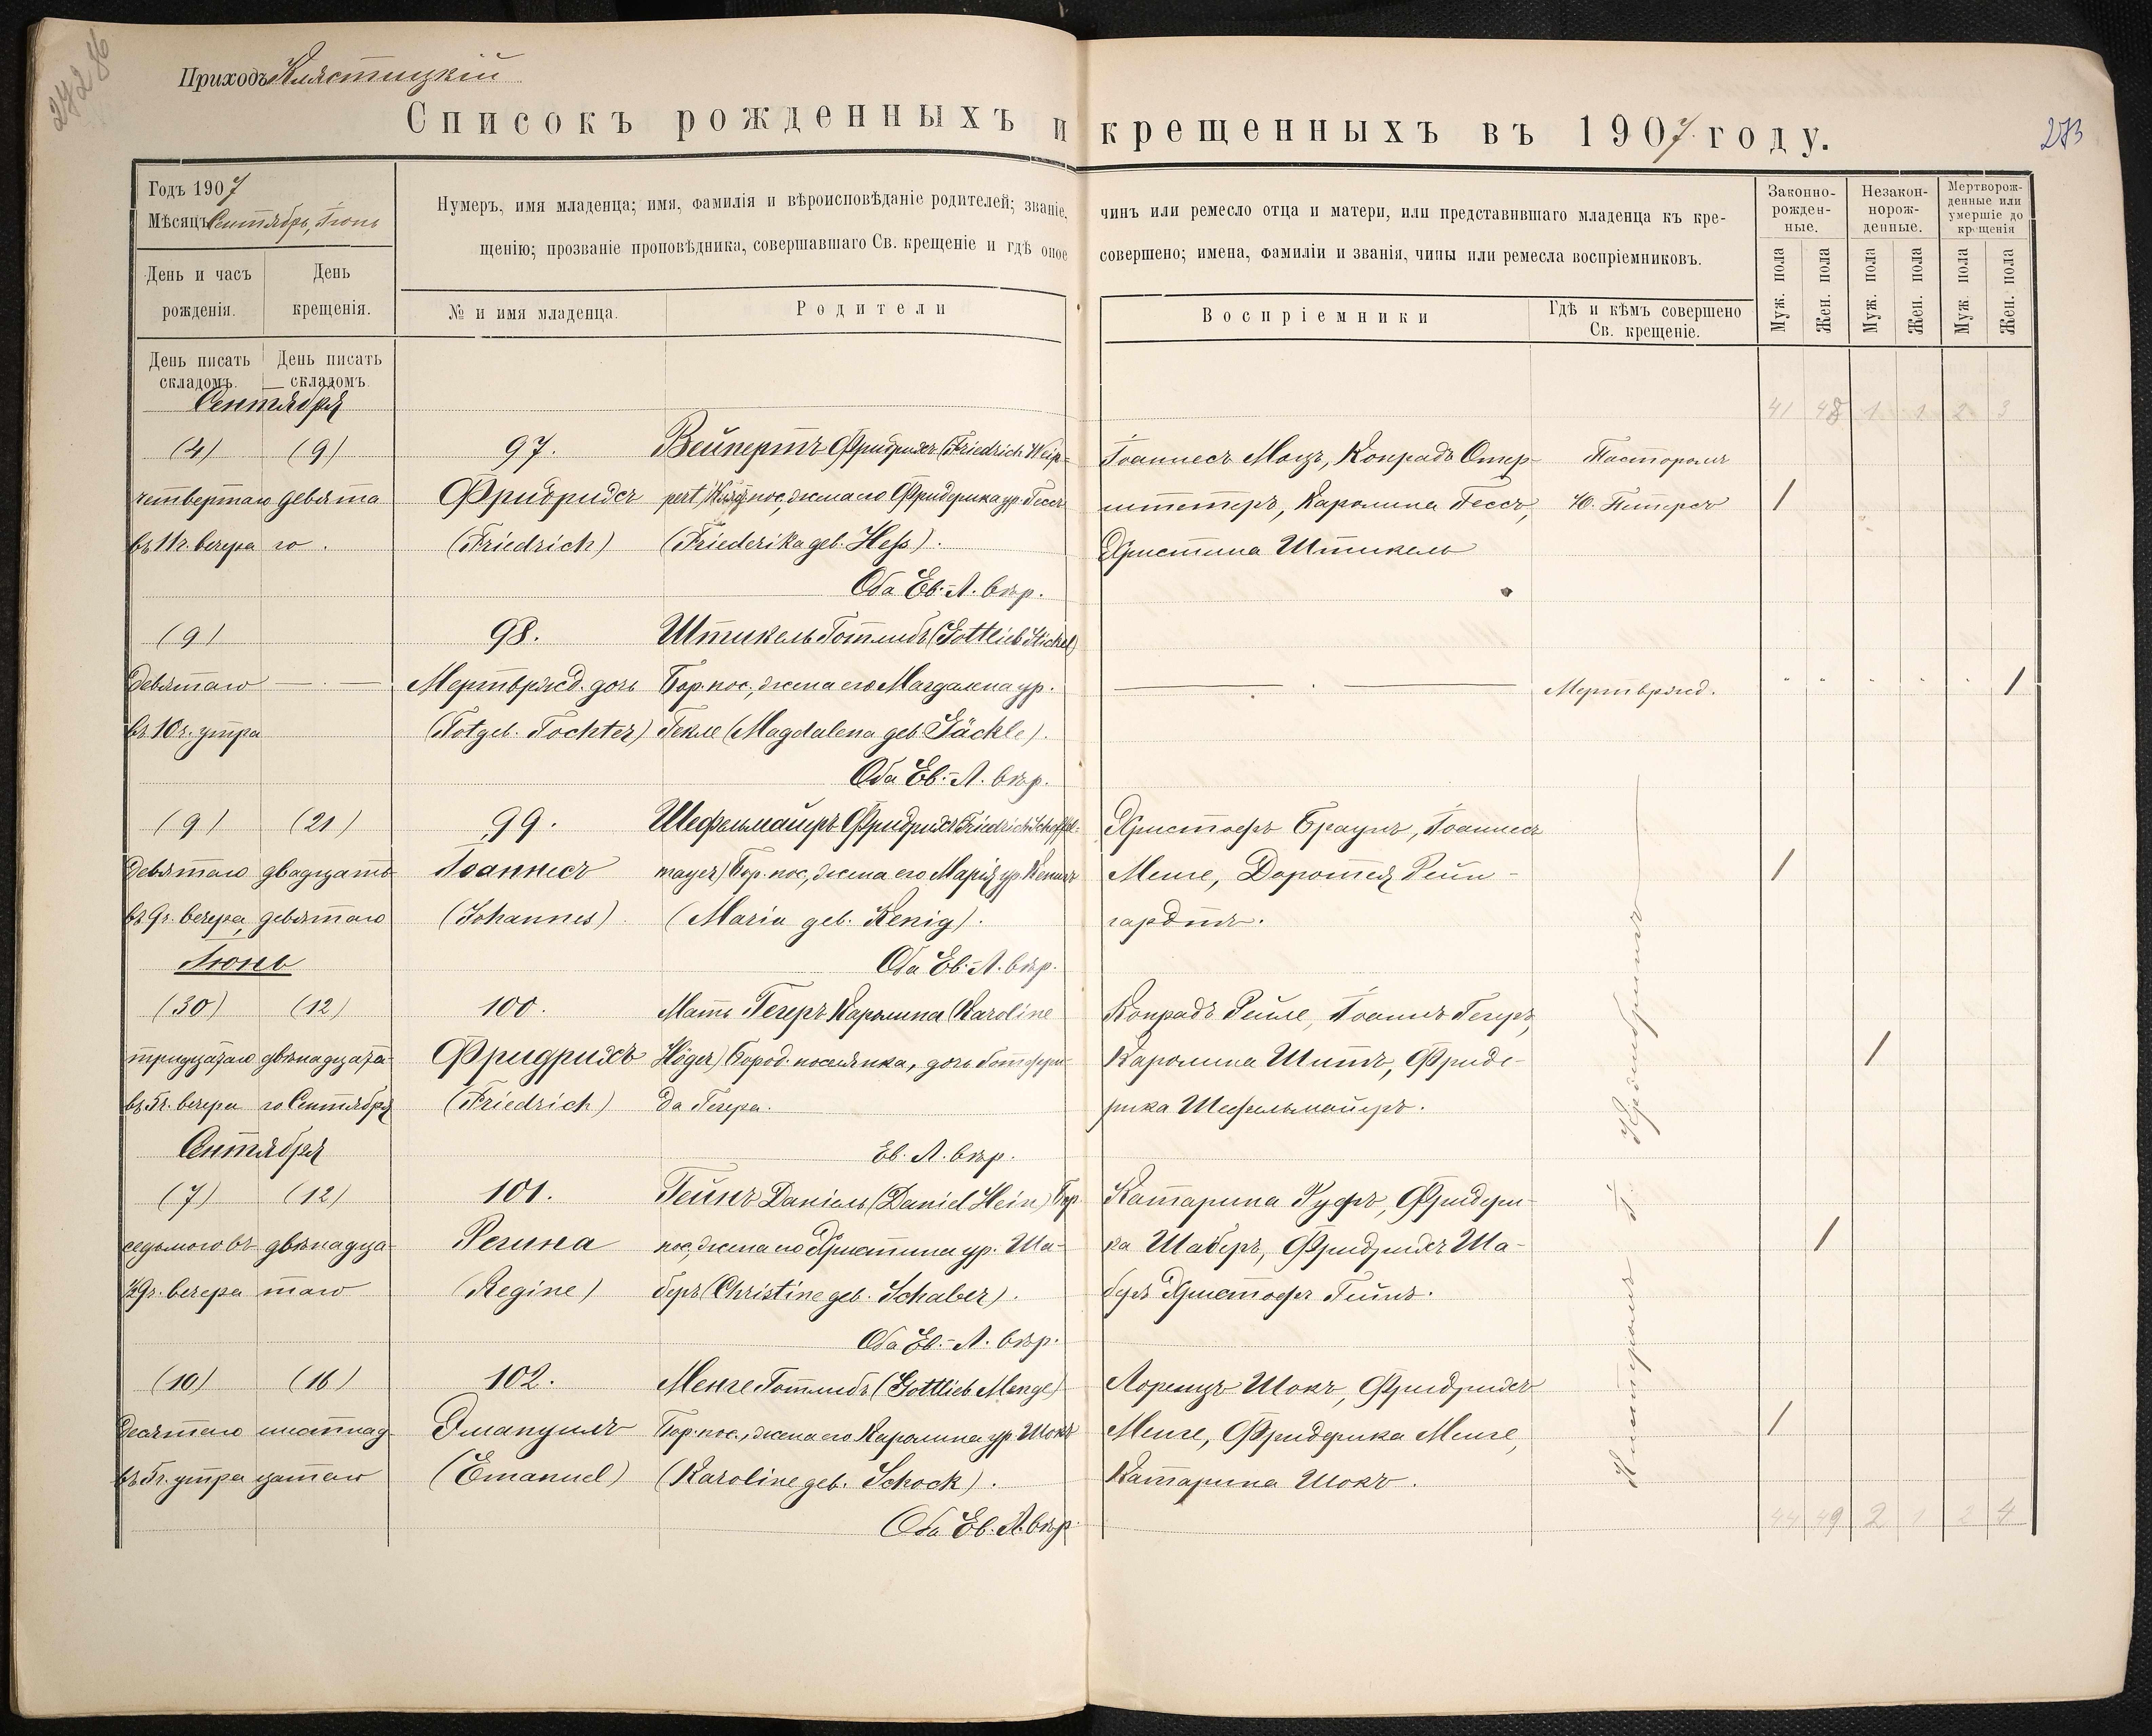 272 об
Приходъ Клястицкій
Списокъ рожденныхъ и крещенныхъ въ 1907 году.
273
Годъ 1907
Мѣсяцъ Сентябрь, Іюнь
День и часъ рожденія.
День крещенія.
Нумеръ, имя младенца; имя, фамилія и вѣроисповѣданіе родителей; званіе, чинъ или ремесло отца и матери, или представившаго младенца къ кре-
щенію; прозваніе проповѣдника, совершавшаго Св. крещеніе и гдѣ оное совершено; имена, фамиліи и званія, чины или ремесла воспріемниковъ.
№ и имя младенца.
Родители
Воспріемники
Гдѣ и кѣмъ совершено Св. крещеніе.
Законно-рожден-ные.
Незакон-норож-денные.
Мертворож-денные или умершіе до крещенія
Муж. пола
Жен. пола
Муж. пола
Жен. пола
Муж. пола
Жен. пола
День писать складомъ.
День писать складомъ.
Сентября
41 48 1 1 2 3
(4) (9) 97. Вейпертъ Фридрихъ (Friedrich Weip- Іоаннесъ Моцъ, Конрадъ Отер- Пасторомъ
четвертаго девята Фридрихъ pert) пос., жена его Фридерика ур. Гессъ штетеръ, Каролина Гессъ, Ю. Петерсъ /
въ 11 ч. вечера го. (Friedrich) (Friederika geb. Heß). Христина Штикель
Оба Ев.-Л. вѣр.
(9) 98. Штикель Готлибъ (Gottlieb Stickel)
девятаго — Мертврожд. дочь Бор. пос., жена его Магдалена ур. — Мертврожд. " " " " " /
въ 10 ч. утра (Totgeb. Tochter) Гекле (Magdalena geb. Jäckle).
Оба Ев.-Л. вѣр.
(9) (21) 99. Шефельмайеръ Фридрихъ (Friedrich Schöffel- Христофъ Браунъ, Іоаннесъ
девятаго двадцать Іоаннесъ mayer) Бор. пос., жена его Марія ур. Кенигъ Менге, Доротея Рейн- /
въ 9 ч. вечера, девятаго (Johannes) (Maria geb. Kenig). гардтъ.
Іюнь Оба Ев.-Л. вѣр.
(30) (12) 100. Мать Гегеръ Каролина (Karoline Конрадъ Рейле, Іоаннъ Гегеръ,
тридцатаго двѣнадцата Фридрихъ Höger) Бород. поселянка, дочь Готтфри- Каролина Шиттъ, Фриде- /
въ 5 ч. вечера го Сентября (Friedrich) да Гегера. рика Шефельмайеръ.
Сентября Ев. Л. вѣр.
(7) (12) 101. Гейнъ Даніель (Daniel Hein) Бор. Катарина Руфъ, Фридери-
седьмого въ двѣнадца- Регина пос., жена его Христина ур. Ша- ка Шаберъ, Фридрихъ Ша- /
½ 9 ч. вечера таго (Regine) беръ (Christine geb. Schaber). беръ Христофъ Гейнъ.
Оба Ев.-Л. вѣр.
(10) (16) 102. Менге Готлибъ (Gottlieb Menge) Лоренцъ Шокъ, Фридрихъ
десятаго шестнад- Эмануилъ Бор. пос., жена его Каролина ур. Шокъ Менге, Фридерика Менге, /
въ 5 ч. утра цатаго (Emanuel) (Karoline geb. Schock). Катарина Шокъ.
Оба Ев. Л. вѣр.
44 49 2 1 2 4